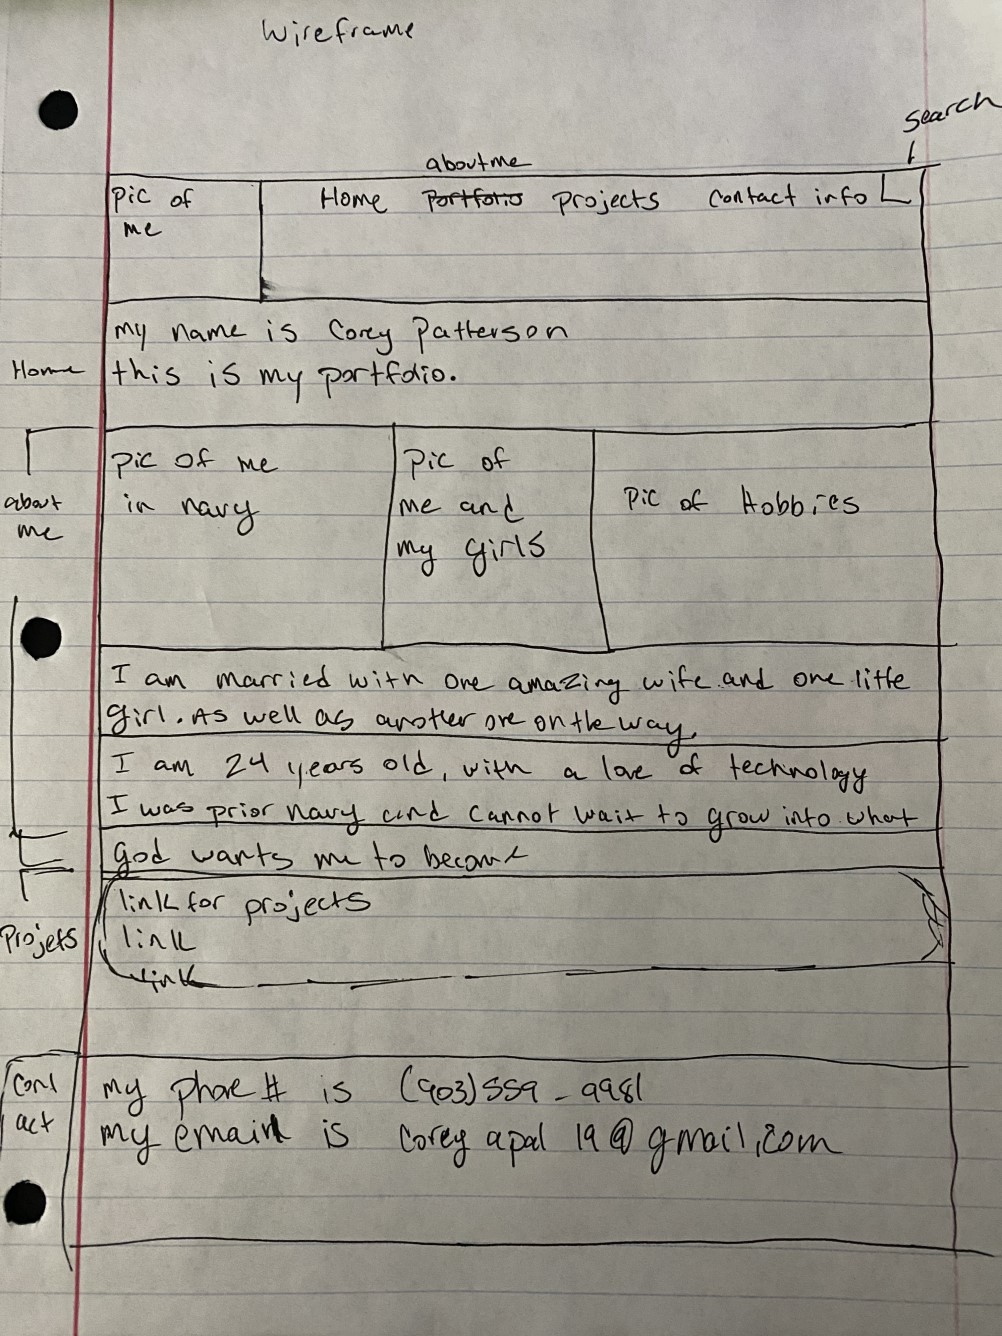 Wireframe
search
about me
pic of me
Home Portfolio projects contact info
my name is Corey Patterson
Home
this is my portfolio.
about me
pic of me in navy
pic of me and my girls
pic of Hobbies
I am married with one amazing wife and one little
girl. As well as another one on the way.
I am 24 years old, with a love of technology
I was prior navy and cannot wait to grow into what
god wants me to become
Projets
link for projects
link
link
Contact
my phone # is (903)559-9981
my email is corey apal 19@gmail.com